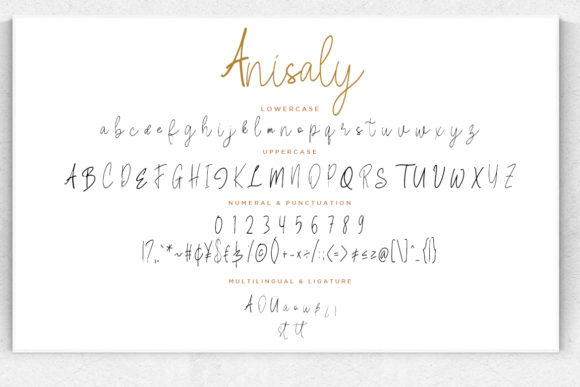 Anisaly
LOWERCASE
a b c d e f g h i j k l m n o p q r s t u v w x y z
UPPERCASE
A B C D E F G H I J K L M N O P Q R S T U V W X Y Z
NUMERAL & PUNCTUATION
0 1 2 3 4 5 6 7 8 9
MULTILINGUAL & LIGATURE
st tt